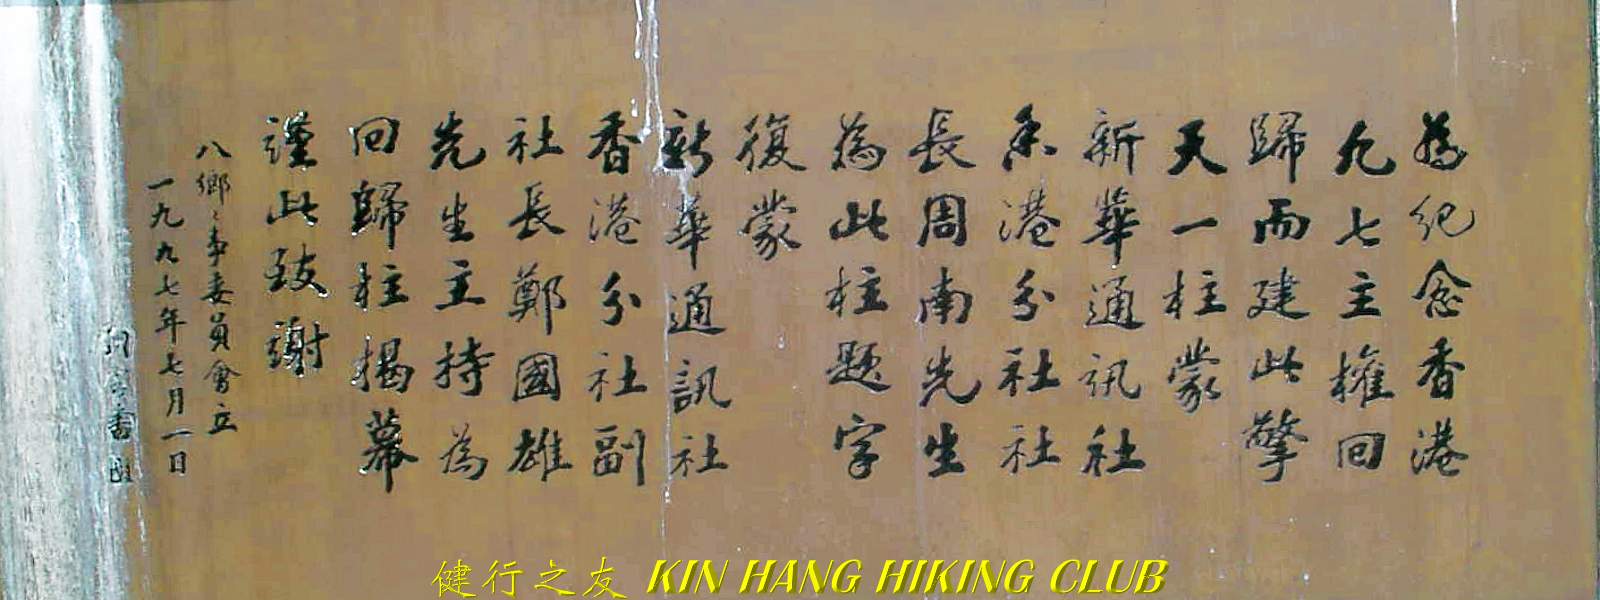 為紀念香港
九七主權回
歸而建此擎
天一柱蒙
新華通訊社
香港分社社
長周南先生
為此柱題字
復蒙
新華通訊社
香港分社副
社長鄭國雄
先生主持為
回歸柱揭幕
謹此致謝
八鄉鄉事委員會立
一九九七年七月一日
健行之友 KIN HANG HIKING CLUB